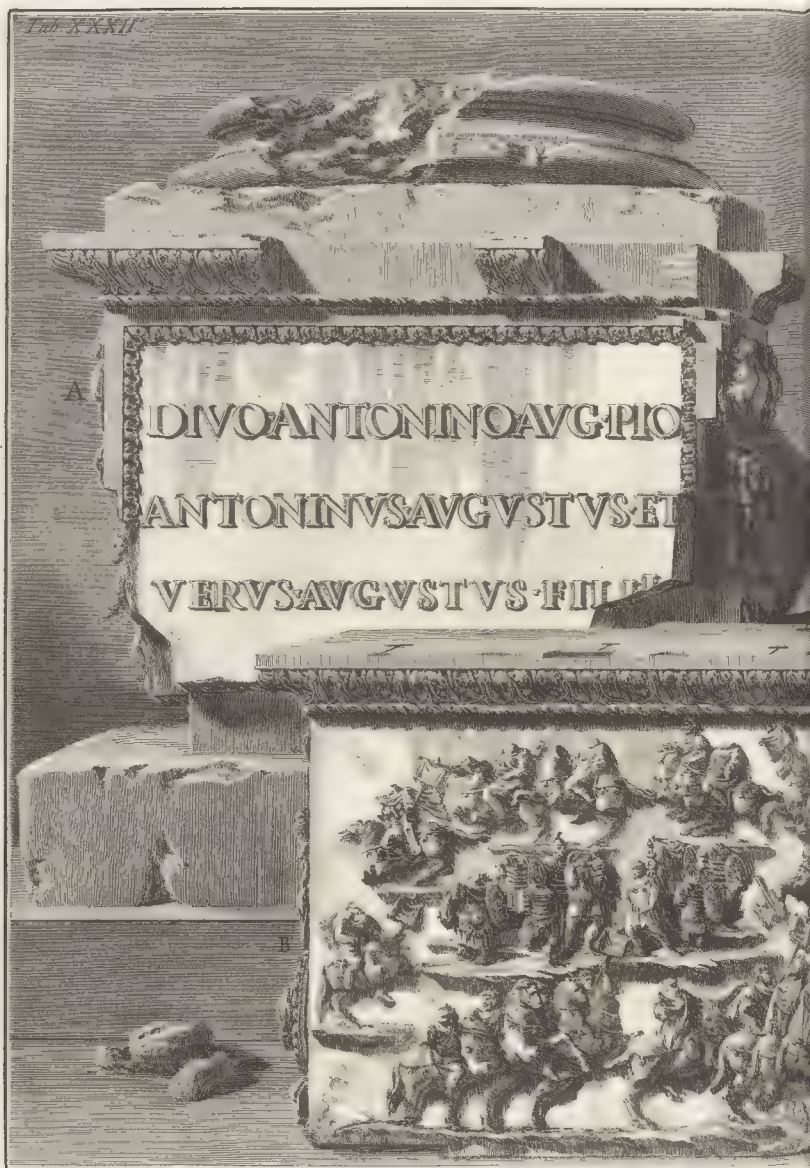 Tab. XXXII
A
DIVO·ANTONINO·AVG·PIO
ANTONINVS·AVGVSTVS·ET
VERVS·AVGVSTVS·FILII
B